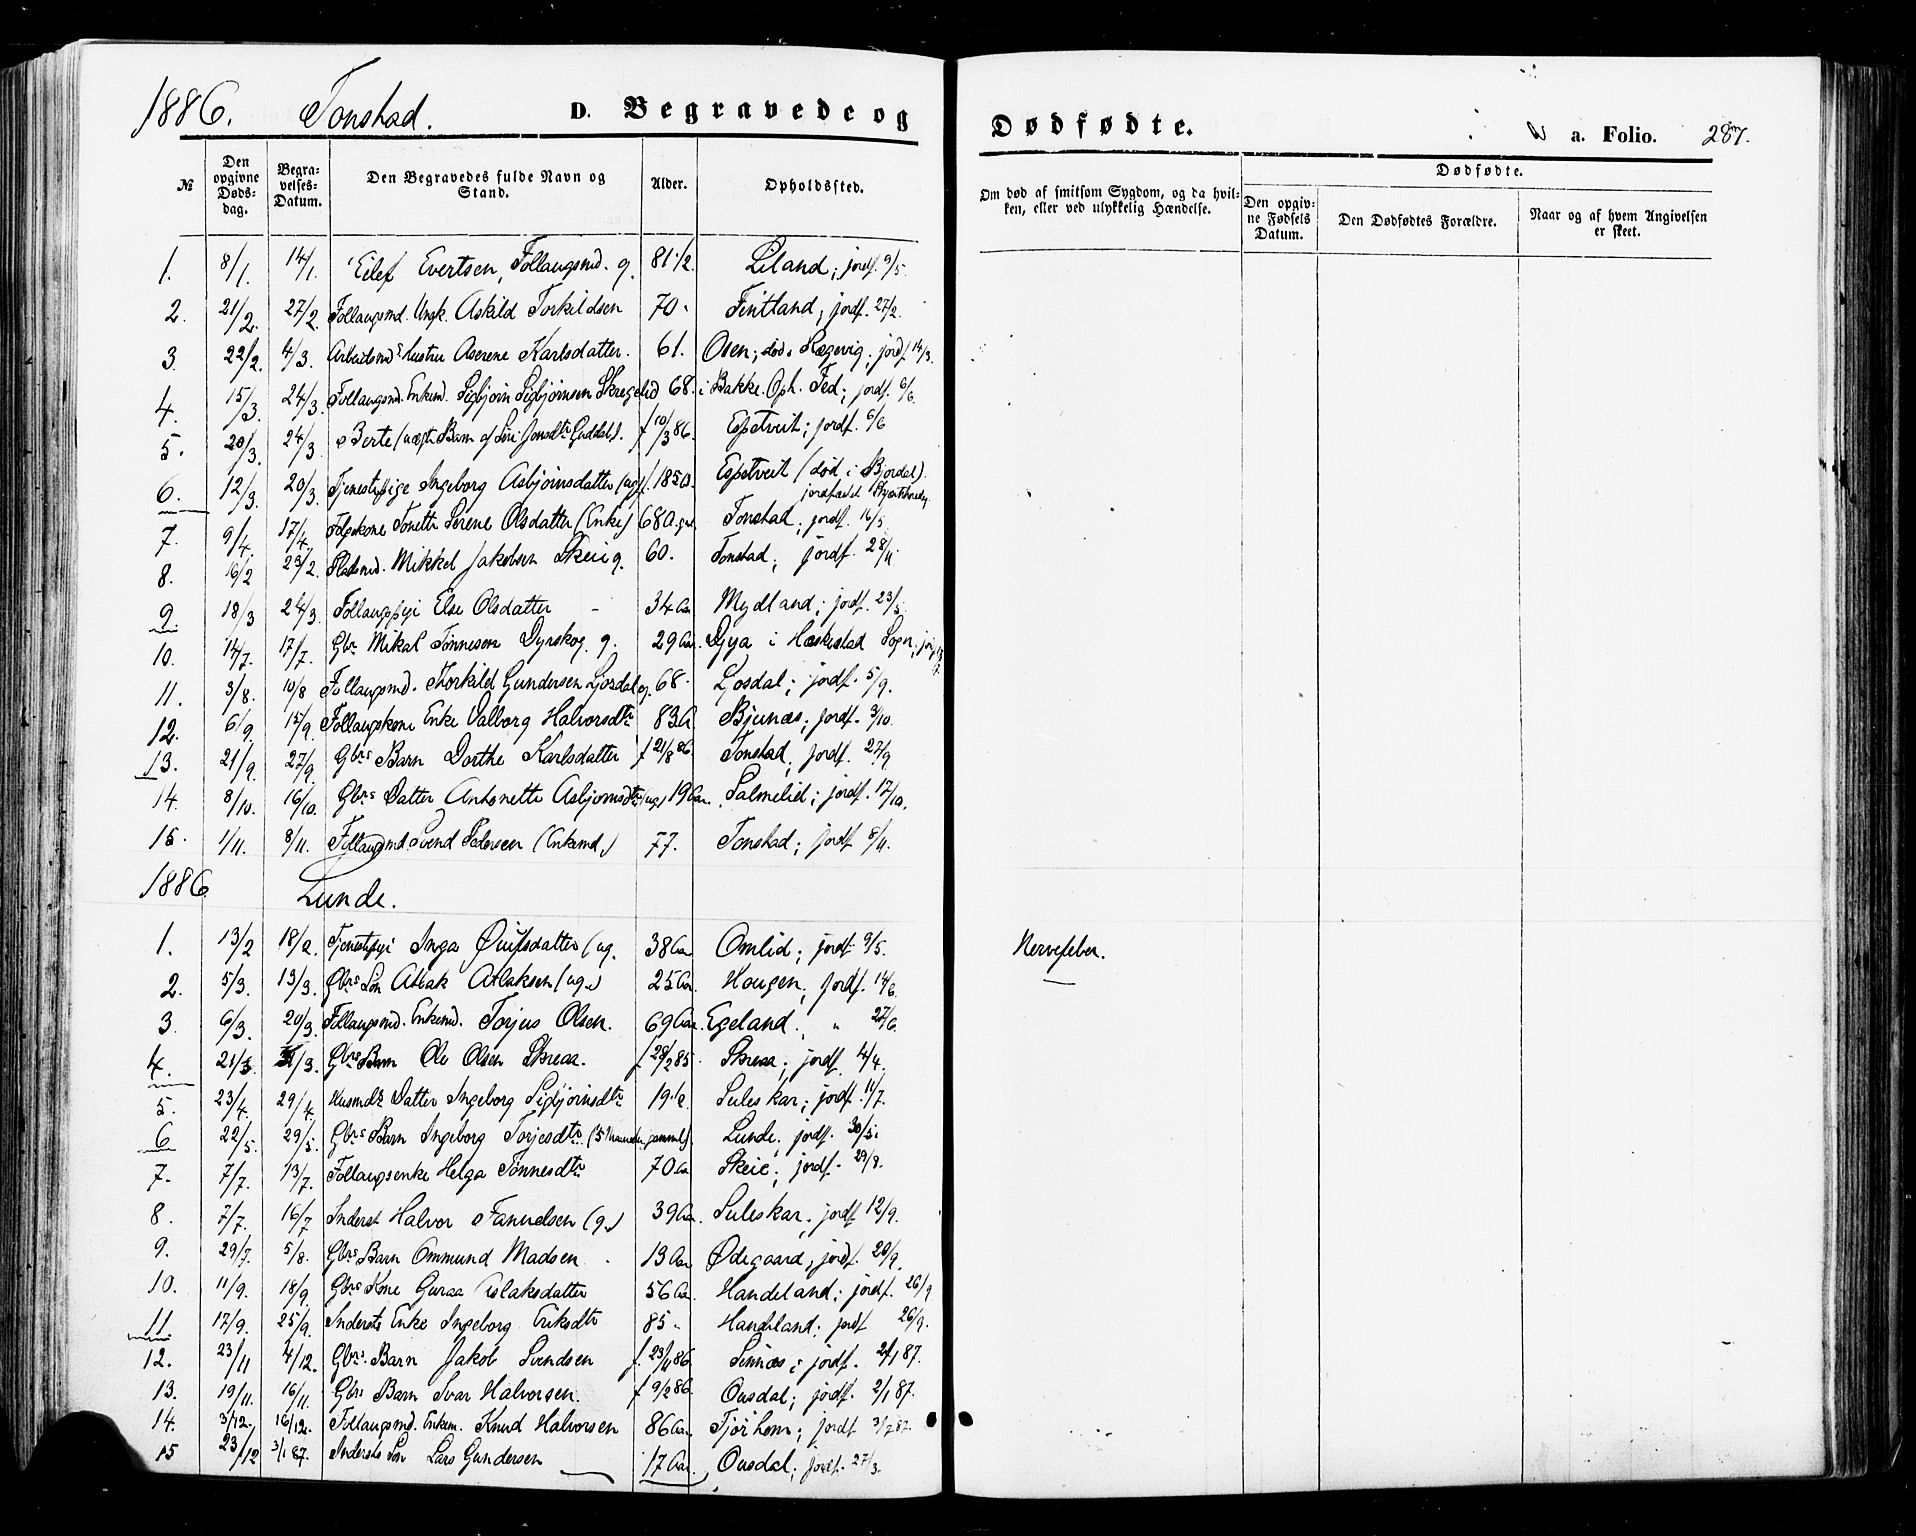 1886. Tonstad. D. Begravede og Dødfødte. a. Folio. 287.
№ Den opgivne Døds-dag. Begra-velses-Datum. Den Begravedes fulde Navn og Stand. Alder. Opholdssted. Om død af smitsom Sygdom, og da hvil-ken, eller ved ulykkelig Hændelse. Dødfødte. Den opgiv-ne Fødsels Datum. Den Dødfødtes Forældre. Naar og af hvem Angivelsen er skeet.
1. 8/1. 14/1. Eilef Evertsen, Follaugsmd. g. 81 1/2. Liland; jordf. 9/5.
2. 21/2. 27/2. Follaugsmd. Ungk. Askild Torkildsen 70. Fintland; jordf. 27/2.
3. 22/2. 4/3. Arbeidsmds hustru Aserene Karlsdatter. 61. Osen; død i Hægevig; jordf. 14/3.
4. 15/3. 24/3. Follaugsmd. Enkemd. Sigbjørn Sigbjørnsen Skregelid 68. i Bakke. Oph. Fed; jordf. 6/6.
5. 20/3. 24/3. Berte (uægte Barn af Siri Jonsdtr Guddal). f 10/3 86. Espetveit; jordf. 6/6
6. 12/3. 20/3. Tjenestepige Ingeborg Asbjørnsdatter (ug) f. 1850. Espetveit (død i Bjordal). jordfæstet
7. 9/4. 17/4. Serene Olsdatter (Enke) 68 Tonstad; jordf. 16/5.
8. 16/2 23/2. Pladsmd. Mikkel Jakobsen Skeie g. 60. Tonstad; jordf. 28/11.
9. 18/3 24/3. Follaugspige Else Olsdatter 34 Aar Mydland; jordf. 23/5.
10. 14/7. 17/7. Gbr. Mikal Tønnesen Dyrskog g. 29 Aar. Gya i Heskestad Sogn;
11. 3/8. 10/8 Follaugsmd. Thorkild Gundersen Ljosdal g. 68. Ljosdal; jordf. 5/9.
12. 6/9. 12/9. Follaugskone Enke Valborg Halvorsdtr 83 A Bjunæs; jordf. 3/10.
13. 21/9. 27/9. Gbrs Barn Dorthe Karlsdatter f 21/8 86. Tonstad, jordf. 27/9
14. 8/10. 16/10. Gbrs Datter Antonette Asbjørnsdtr (ug) 19 Aar. Salmelid; jordf. 17/10.
15. 1/11. 8/11. Follaugsmd. Svend Pedersen (Enkemd.) 77. Tonstad; jordf 8/11.
1886. Lunde.
1. 13/2 18/2. Tjenestepige Inga Ouifsdatter (ug. 38 Aar Omlid; jordf 9/5. Nervefeber.
2. 5/3. 13/3. Gbrs Søn Atlak Atlaksen (ug.) 25 Aar. Hougen; jordf. 14/6.
3. 6/3. 20/3. Follaugsmd. Enkemd. Torjus Olsen. 69 Aar. Egeland. " 27/6.
4. 21/3. 31/3. Gbrs Barn Ole Olsen Skreaa. f 28/2 85. Skreaa; jordf. 4/4.
5. 23/4. 29/4. Husmds Datter Ingeborg Sigbjørnsdtr 19 1/2. Suleskar; jordf. 11/7.
6. 22/5. 29/5. Gbrs Barn Ingeborg Torjesdtr. (5 Maaneder gammel). Lunde. jordf. 30/5.
7. 7/7. 13/7. Follaugsenke Helga Tønnesdtr 70 Aar Skeie; jordf. 29/8.
8. 7/7. 16/7 Inderst Halvor Fanuelsen (g.) 39 Aar. Suleskar. jordf 12/9.
9. 29/7. 5/8. Gbrs Barn Ommund Madsen 13 Aar Ødegaard, jordf. 20/9.
10. 11/9. 18/9. Gbrs Kone Guraa Aslaksdatter 56 Aar. Handeland; jordf. 26/9
11. 17/9. 25/9. Indersts Enke Ingeborg Eriksdtr 85. Handeland; jordf 26/9.
12. 23/11 4/12. Gbrs. Barn Jakob Svendsen f. 23/11 86. Sinnæs; jordf. 2/1 87.
13. 19/11. 16/11. Gbrs Barn Ivar Halvorsen. f 9/2 86. Ousdal; jordf. 2/1 87.
14. 3/12. 16/12. Follaugsmd. Enkem. Knud Halvorsen 86 Aar. Tjørhom; jordf 3/7 87.
15 23/12 3/1 87. Indersts Søn Lars Gundersen 17 Aar. Ousdal; jordf. 27/3.